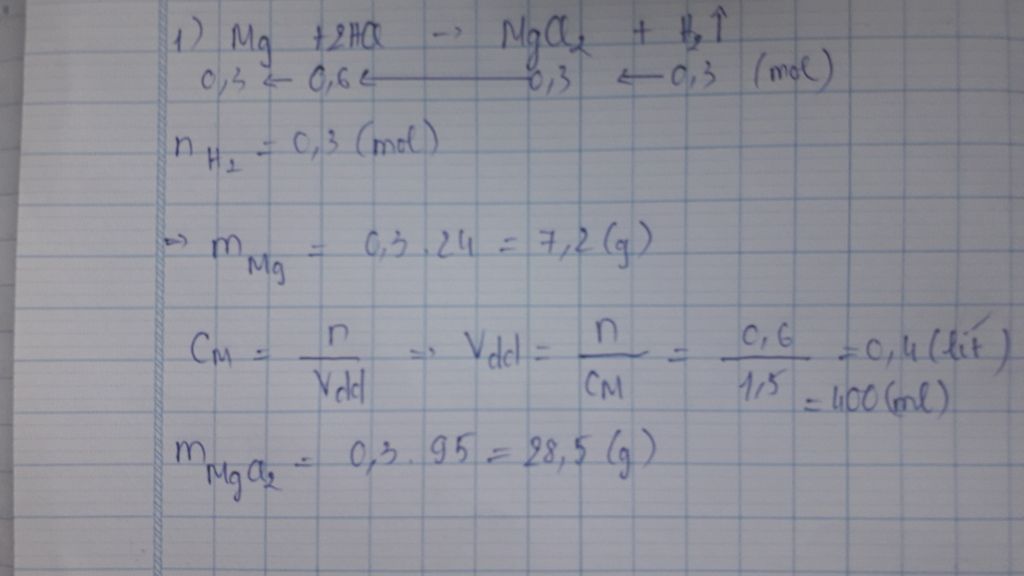 1) Mg + 2HCl → MgCl₂ + H₂↑
0,3 ← 0,6 ← 0,3 ← 0,3 (mol)
n H₂ = 0,3 (mol)
=> m Mg = 0,3 . 24 = 7,2 (g)
CM = n / Vdd => Vdd = n / CM = 0,6 / 1,5 = 0,4 (lít)
= 400 (ml)
m MgCl₂ = 0,3 . 95 = 28,5 (g)